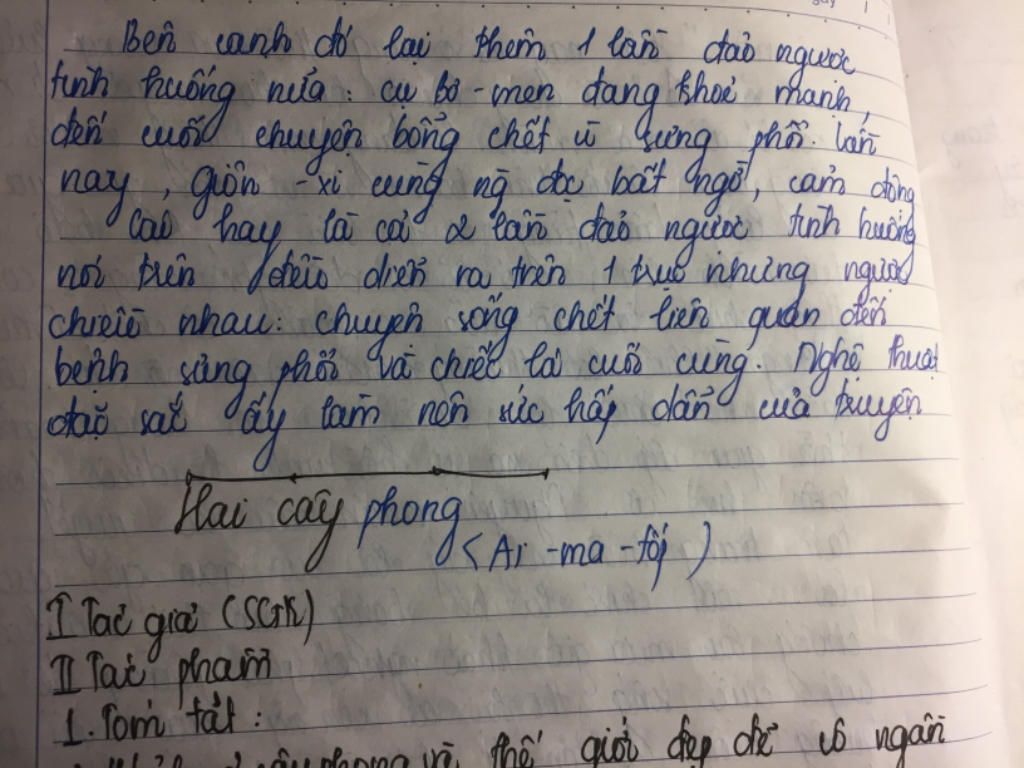 Bên cạnh đó lại thêm 1 lần đảo ngược
tình huống nữa: cụ Bơ-men đang khoẻ mạnh,
đến cuối chuyện bỗng chết vì sưng phổi. Lần
này, Giôn-xi cùng ng đọc bất ngờ, cảm động
Cái hay là cả 2 lần đảo ngược tình huống
nói trên đều diễn ra trên 1 trục nhưng ngược
chiều nhau: chuyện sống chết liên quan đến
bệnh sưng phổi và chiếc lá cuối cùng. Nghệ thuật
đặc sắc ấy làm nên sức hấp dẫn của truyện
Hai cây phong
(Ai-ma-tốp)
I Tác giả (SGK)
II Tác phẩm
1. Tóm tắt:
phong và thế giới đẹp đẽ vô ngần